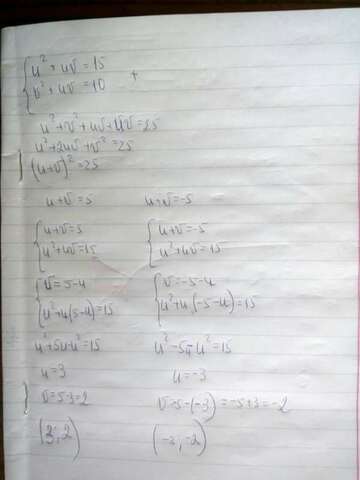 u² + uv = 15
v² + uv = 10 +
u² + v² + uv + uv = 25
u² + 2uv + v² = 25
(u+v)² = 25
u+v = 5 u+v = -5
u+v = 5 u+v = -5
u² + uv = 15 u² + uv = 15
v = 5-u v = -5-u
u² + u(5-u) = 15 u² + u(-5-u) = 15
u² + 5u - u² = 15 u² - 5u - u² = 15
u = 3 u = -3
v = 5-3 = 2 v = -5-(-3) = -5+3 = -2
(3; 2) (-3; -2)